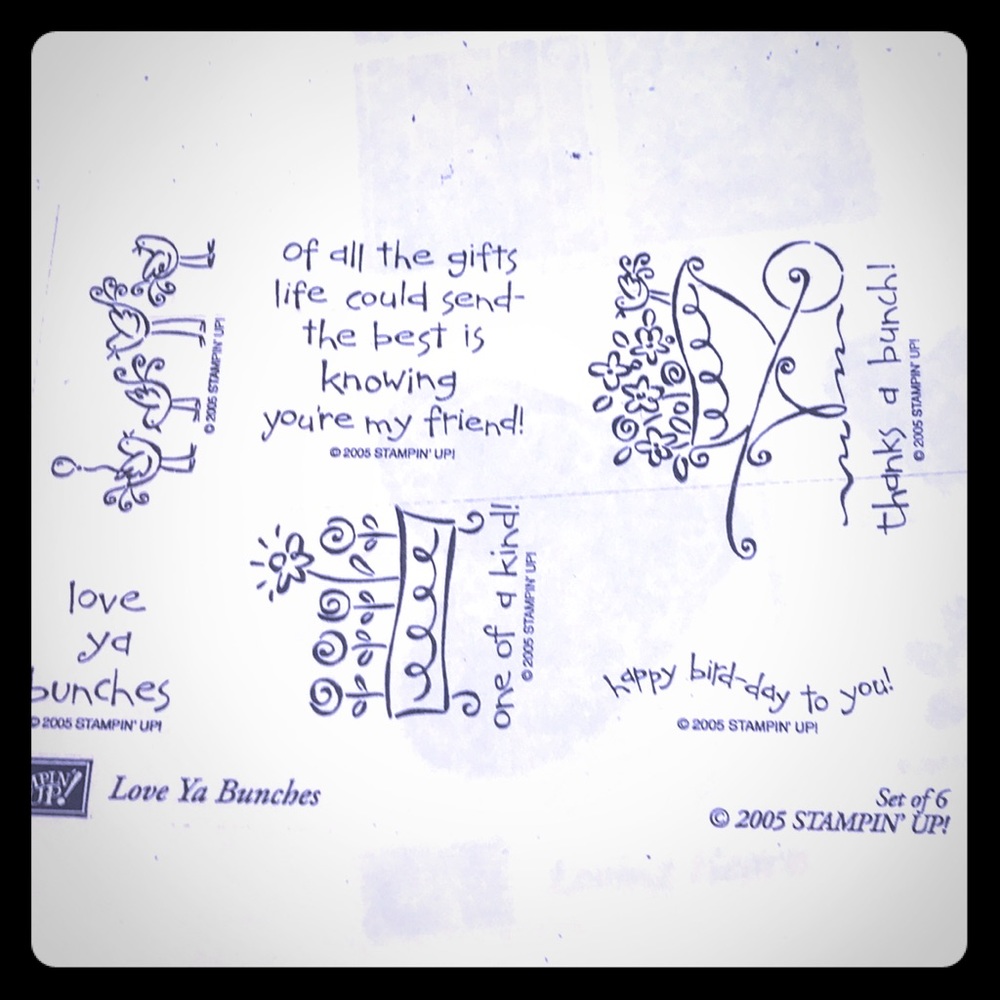 © 2005 STAMPIN' UP!
of all the gifts
life could send-
the best is
knowing
you're my friend!
© 2005 STAMPIN' UP!
thanks a bunch!
© 2005 STAMPIN' UP!
love
ya
bunches
© 2005 STAMPIN' UP!
one of a kind!
© 2005 STAMPIN' UP!
happy bird-day to you!
© 2005 STAMPIN' UP!
APIN'
UP!
Love Ya Bunches
Set of 6
© 2005 STAMPIN' UP!